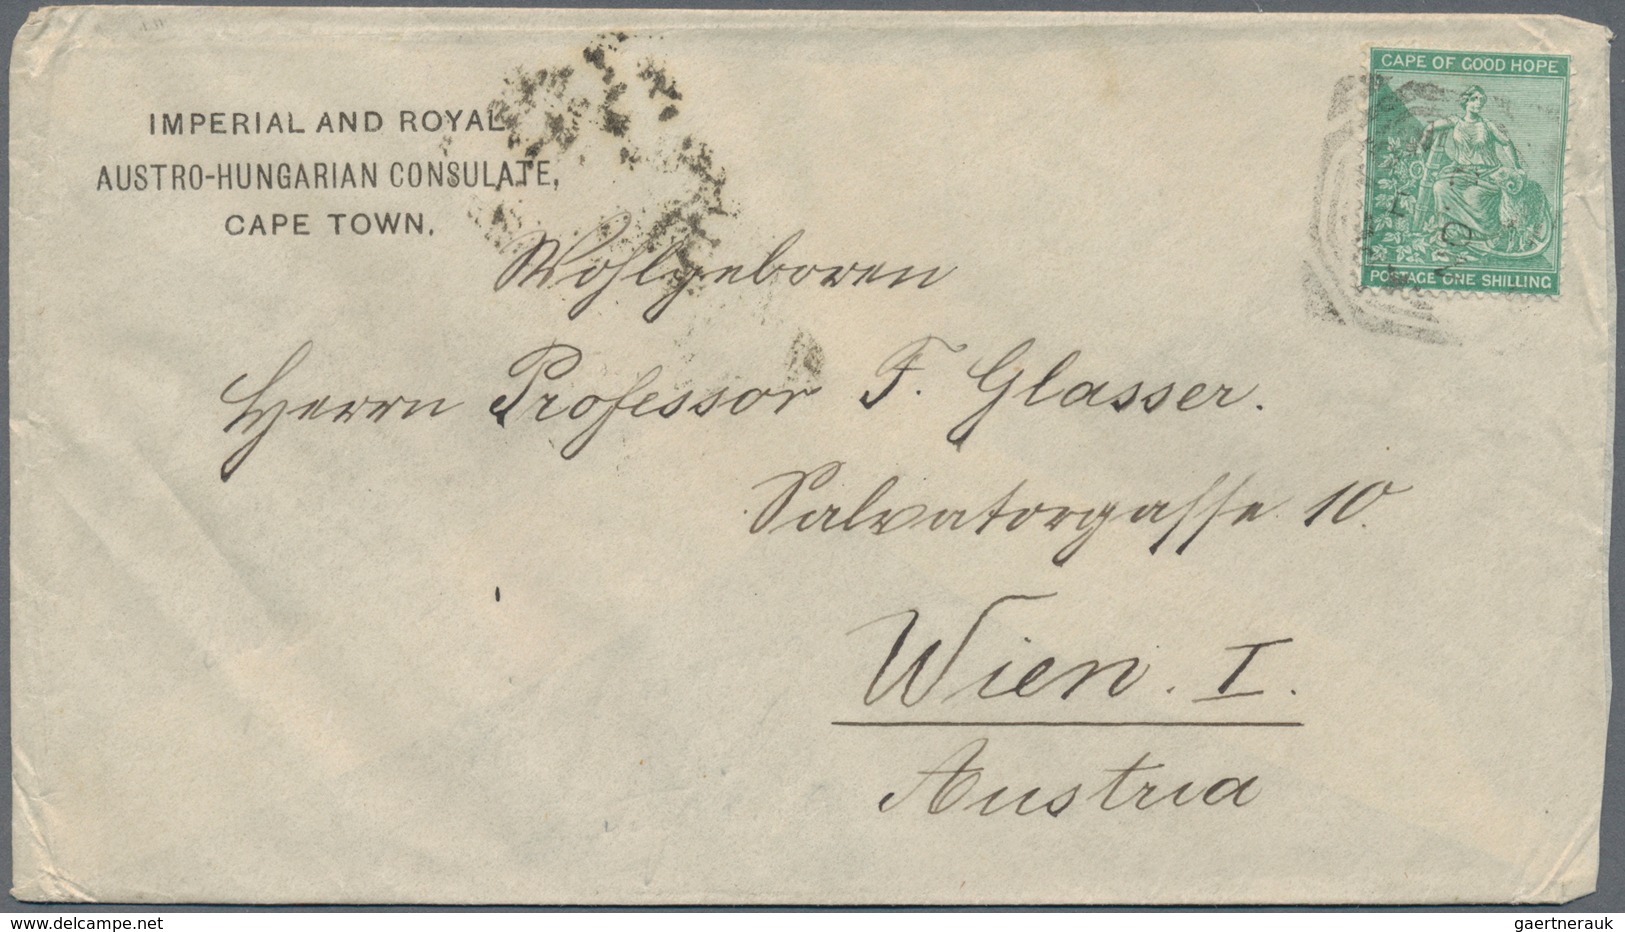 IMPERIAL AND ROYAL
AUSTRO-HUNGARIAN CONSULATE,
CAPE TOWN.
CAPE OF GOOD HOPE
POSTAGE ONE SHILLING
Wohlgeboren
Herrn Professor F. Glasser.
Salvatorgasse 10.
Wien. I.
Austria
delcampe.net
gaertnerauk